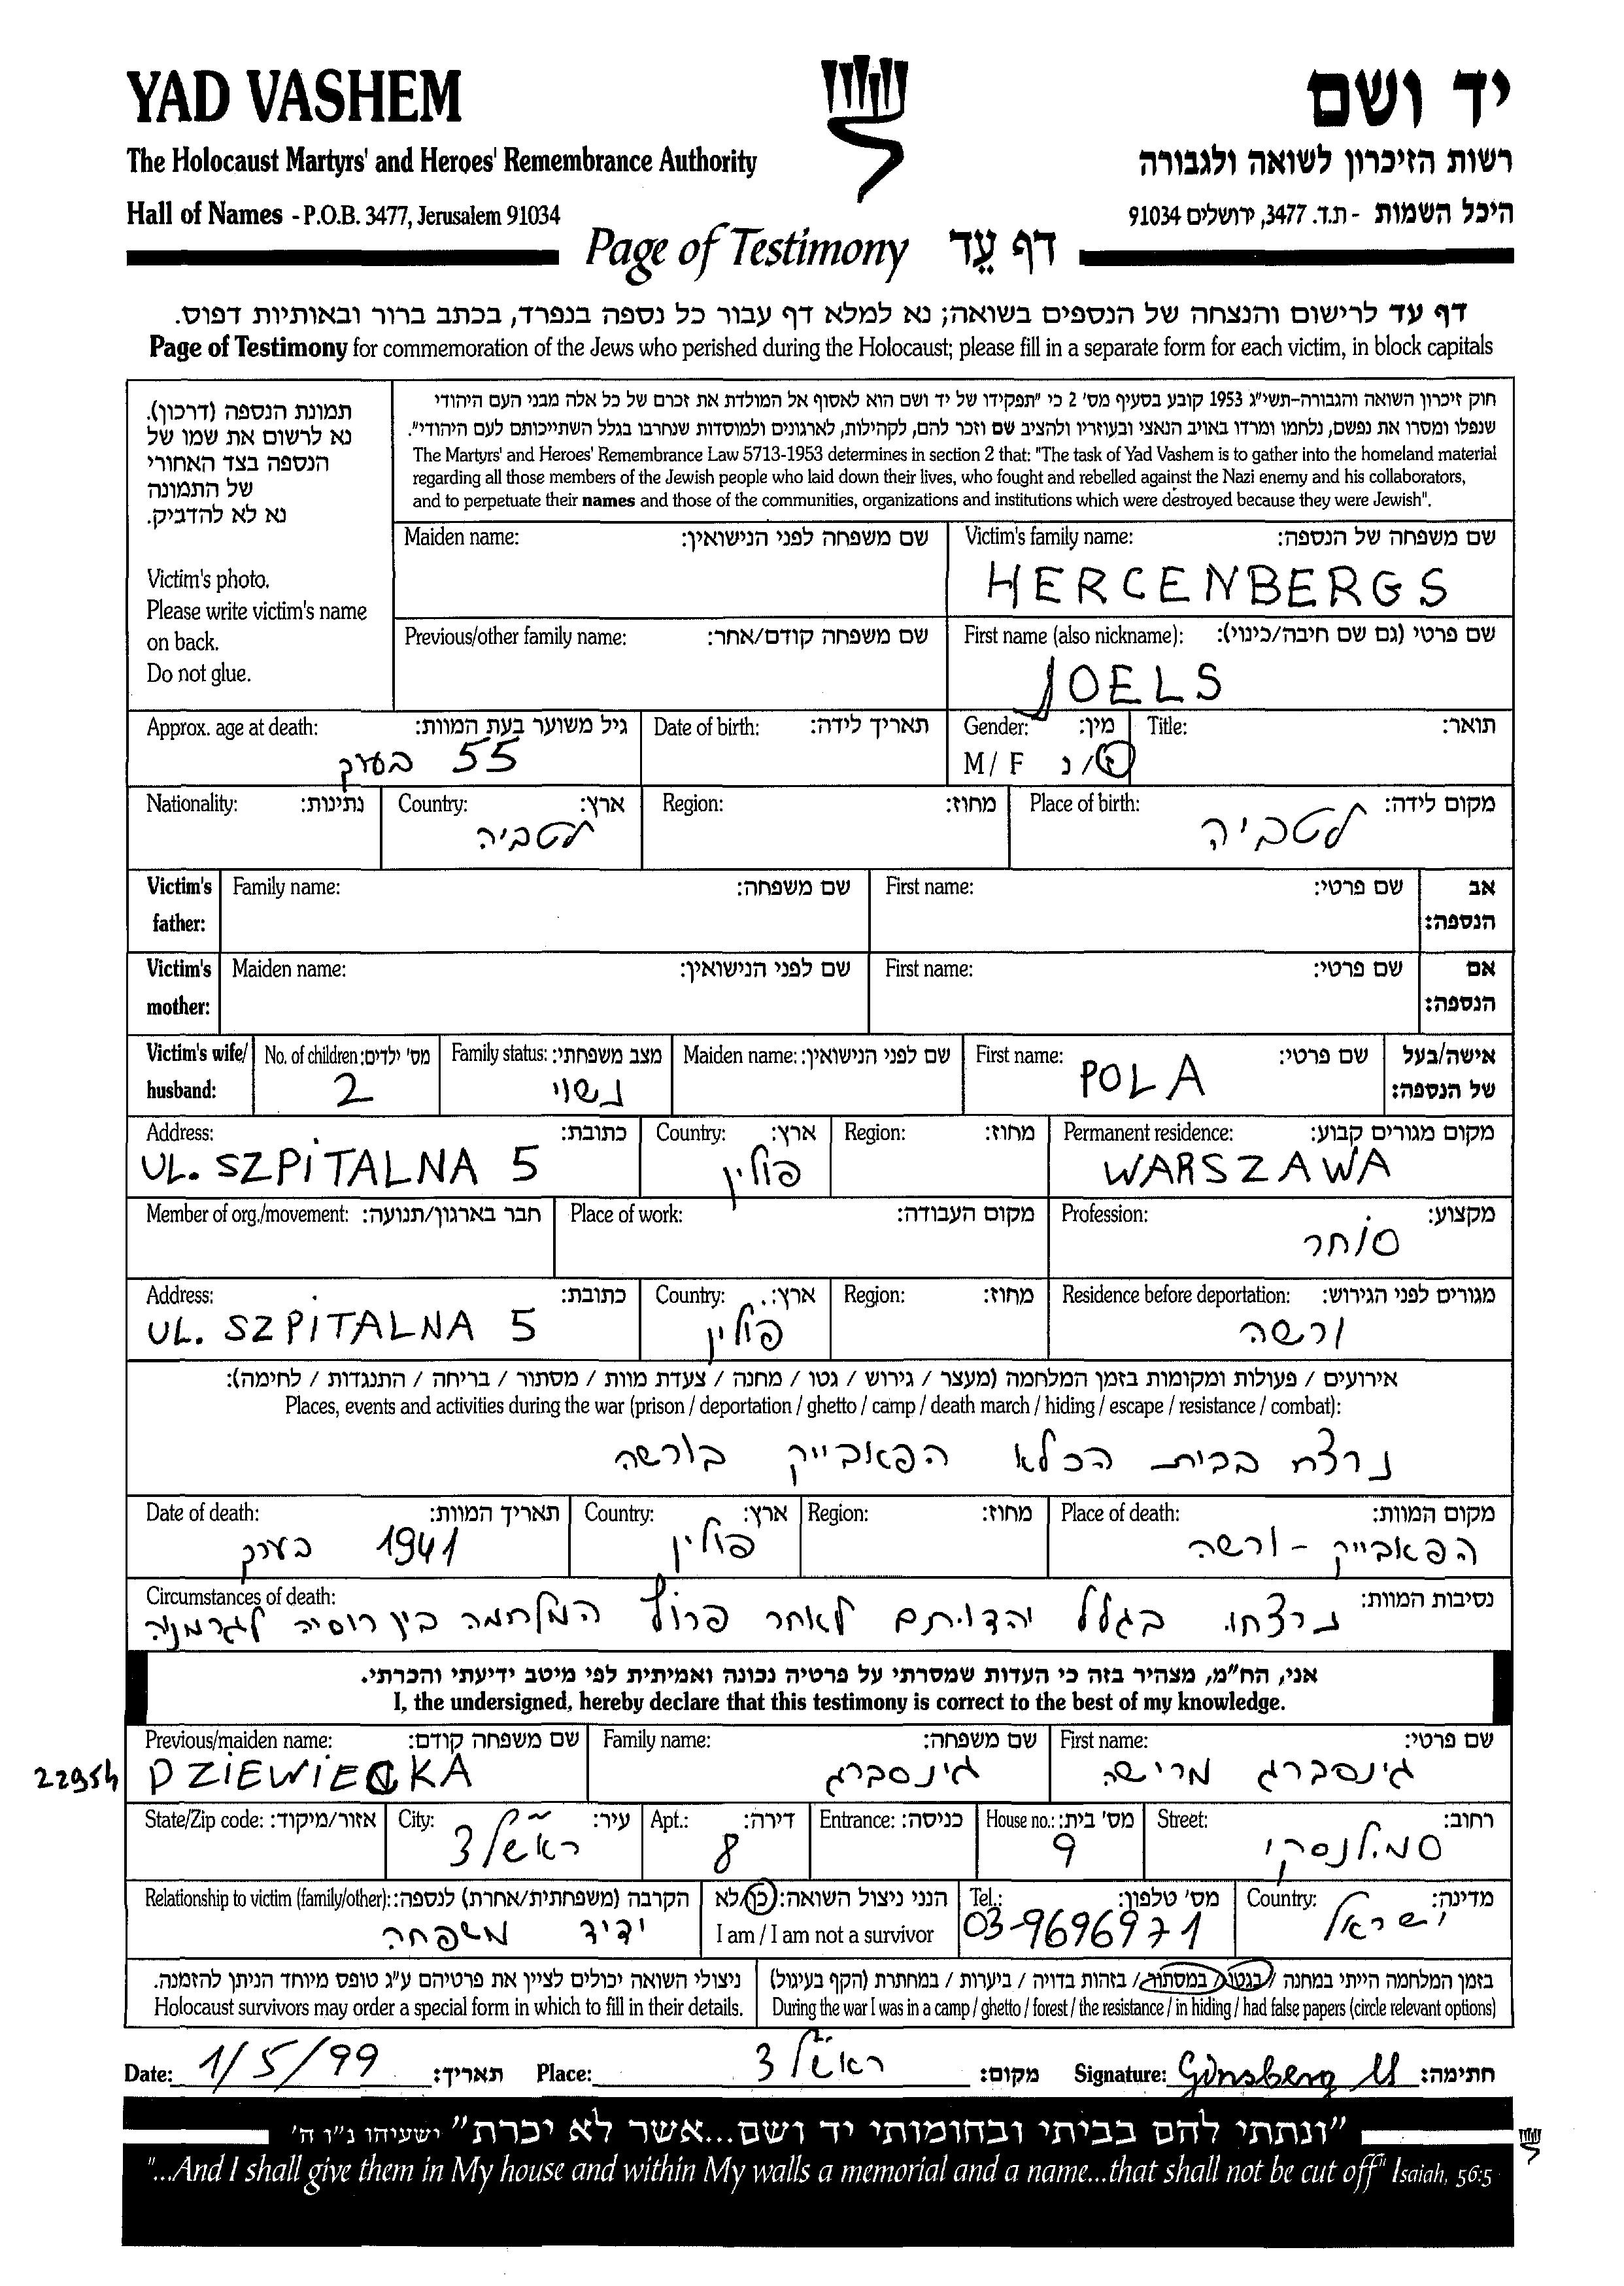 YAD VASHEM
יד ושם
The Holocaust Martyrs' and Heroes' Remembrance Authority
רשות הזיכרון לשואה ולגבורה
Hall of Names - P.O.B. 3477, Jerusalem 91034
היכל השמות - ת.ד. 3477, ירושלים 91034
Page of Testimony דף עֵד
דף עד לרישום והנצחה של הנספים בשואה; נא למלא דף עבור כל נספה בנפרד, בכתב ברור ובאותיות דפוס.
Page of Testimony for commemoration of the Jews who perished during the Holocaust; please fill in a separate form for each victim, in block capitals
תמונת הנספה (דרכון).
נא לרשום את שמו של
הנספה בצד האחורי
של התמונה
נא לא להדביק.
Victim's photo.
Please write victim's name
on back.
Do not glue.
חוק זיכרון השואה והגבורה-תשי"ג 1953 קובע בסעיף מס' 2 כי "תפקידו של יד ושם הוא לאסוף אל המולדת את זכרם של כל אלה מבני העם היהודי
שנפלו ומסרו את נפשם, נלחמו ומרדו באויב הנאצי ובעוזריו ולהציב שם וזכר להם, לקהילות, לארגונים ולמוסדות שנחרבו בגלל השתייכותם לעם היהודי".
The Martyrs' and Heroes' Remembrance Law 5713-1953 determines in section 2 that: "The task of Yad Vashem is to gather into the homeland material
regarding all those members of the Jewish people who laid down their lives, who fought and rebelled against the Nazi enemy and his collaborators,
and to perpetuate their names and those of the communities, organizations and institutions which were destroyed because they were Jewish".
Maiden name: שם משפחה לפני הנישואין:
Victim's family name: שם משפחה של הנספה:
HERCENBERGS
Previous/other family name: שם משפחה קודם/אחר:
First name (also nickname): שם פרטי (גם שם חיבה/כינוי):
JOELS
Approx. age at death: גיל משוער בעת המוות:
55 בערך
Date of birth: תאריך לידה:
Gender: מין:
M / F ז/נ
Title: תואר:
Nationality: נתינות:
Country: ארץ:
לטביה
Region: מחוז:
Place of birth: מקום לידה:
לטביה
Victim's father:
Family name: שם משפחה:
First name: שם פרטי:
אב הנספה:
Victim's mother:
Maiden name: שם לפני הנישואין:
First name: שם פרטי:
אם הנספה:
Victim's wife/ husband:
No. of children: מס' ילדים:
2
Family status: מצב משפחתי:
נשוי
Maiden name: שם לפני הנישואין:
First name: שם פרטי:
POLA
אישה/בעל של הנספה:
Address: כתובת:
UL. SZPITALNA 5
Country: ארץ:
פולין
Region: מחוז:
Permanent residence: מקום מגורים קבוע:
WARSZAWA
Member of org./movement: חבר בארגון/תנועה:
Place of work: מקום העבודה:
Profession: מקצוע:
סוחר
Address: כתובת:
UL. SZPITALNA 5
Country: ארץ:
פולין
Region: מחוז:
Residence before deportation: מגורים לפני הגירוש:
ורשה
אירועים / פעולות ומקומות בזמן המלחמה (מעצר / גירוש / גטו / מחנה / צעדת מוות / מסתור / בריחה / התנגדות / לחימה):
Places, events and activities during the war (prison / deportation / ghetto / camp / death march / hiding / escape / resistance / combat):
נרצח בבית הכלא הפאבייק בורשה
Date of death: תאריך המוות:
1941 בערך
Country: ארץ:
פולין
Region: מחוז:
Place of death: מקום המוות:
הפאבייק - ורשה
Circumstances of death: נסיבות המוות:
נרצחו בגלל יהדותם לאחר פרוץ המלחמה בין רוסיה לגרמניה
אני, הח"מ, מצהיר בזה כי העדות שמסרתי על פרטיה נכונה ואמיתית לפי מיטב ידיעתי והכרתי.
I, the undersigned, hereby declare that this testimony is correct to the best of my knowledge.
22954
Previous/maiden name: שם משפחה קודם:
DZIEWIECKA
Family name: שם משפחה:
גינסברג
First name: שם פרטי:
גינסברג מרישה
State/Zip code: אזור/מיקוד:
City: עיר:
ראשל"צ
Apt.: דירה:
8
Entrance: כניסה:
House no.: מס' בית:
9
Street: רחוב:
סמילנסקי
Relationship to victim (family/other): הקרבה (משפחתית/אחרת) לנספה:
ידיד משפחה
הנני ניצול השואה: כן/לא
I am / I am not a survivor
Tel.: מס' טלפון:
03-9696971
Country: מדינה:
ישראל
ניצולי השואה יכולים לציין את פרטיהם ע"ג טופס מיוחד הניתן להזמנה.
Holocaust survivors may order a special form in which to fill in their details.
בזמן המלחמה הייתי במחנה / בגטו / במסתור / בזהות בדויה / ביערות / במחתרת (הקף בעיגול)
During the war I was in a camp / ghetto / forest / the resistance / in hiding / had false papers (circle relevant options)
Date: 1/5/99 תאריך: Place: ראשל"צ מקום: Signature: Ginsberg M חתימה:
"ונתתי להם בביתי ובחומותי יד ושם...אשר לא יכרת" ישעיהו נ"ו ה'
"...And I shall give them in My house and within My walls a memorial and a name...that shall not be cut off" Isaiah, 56:5